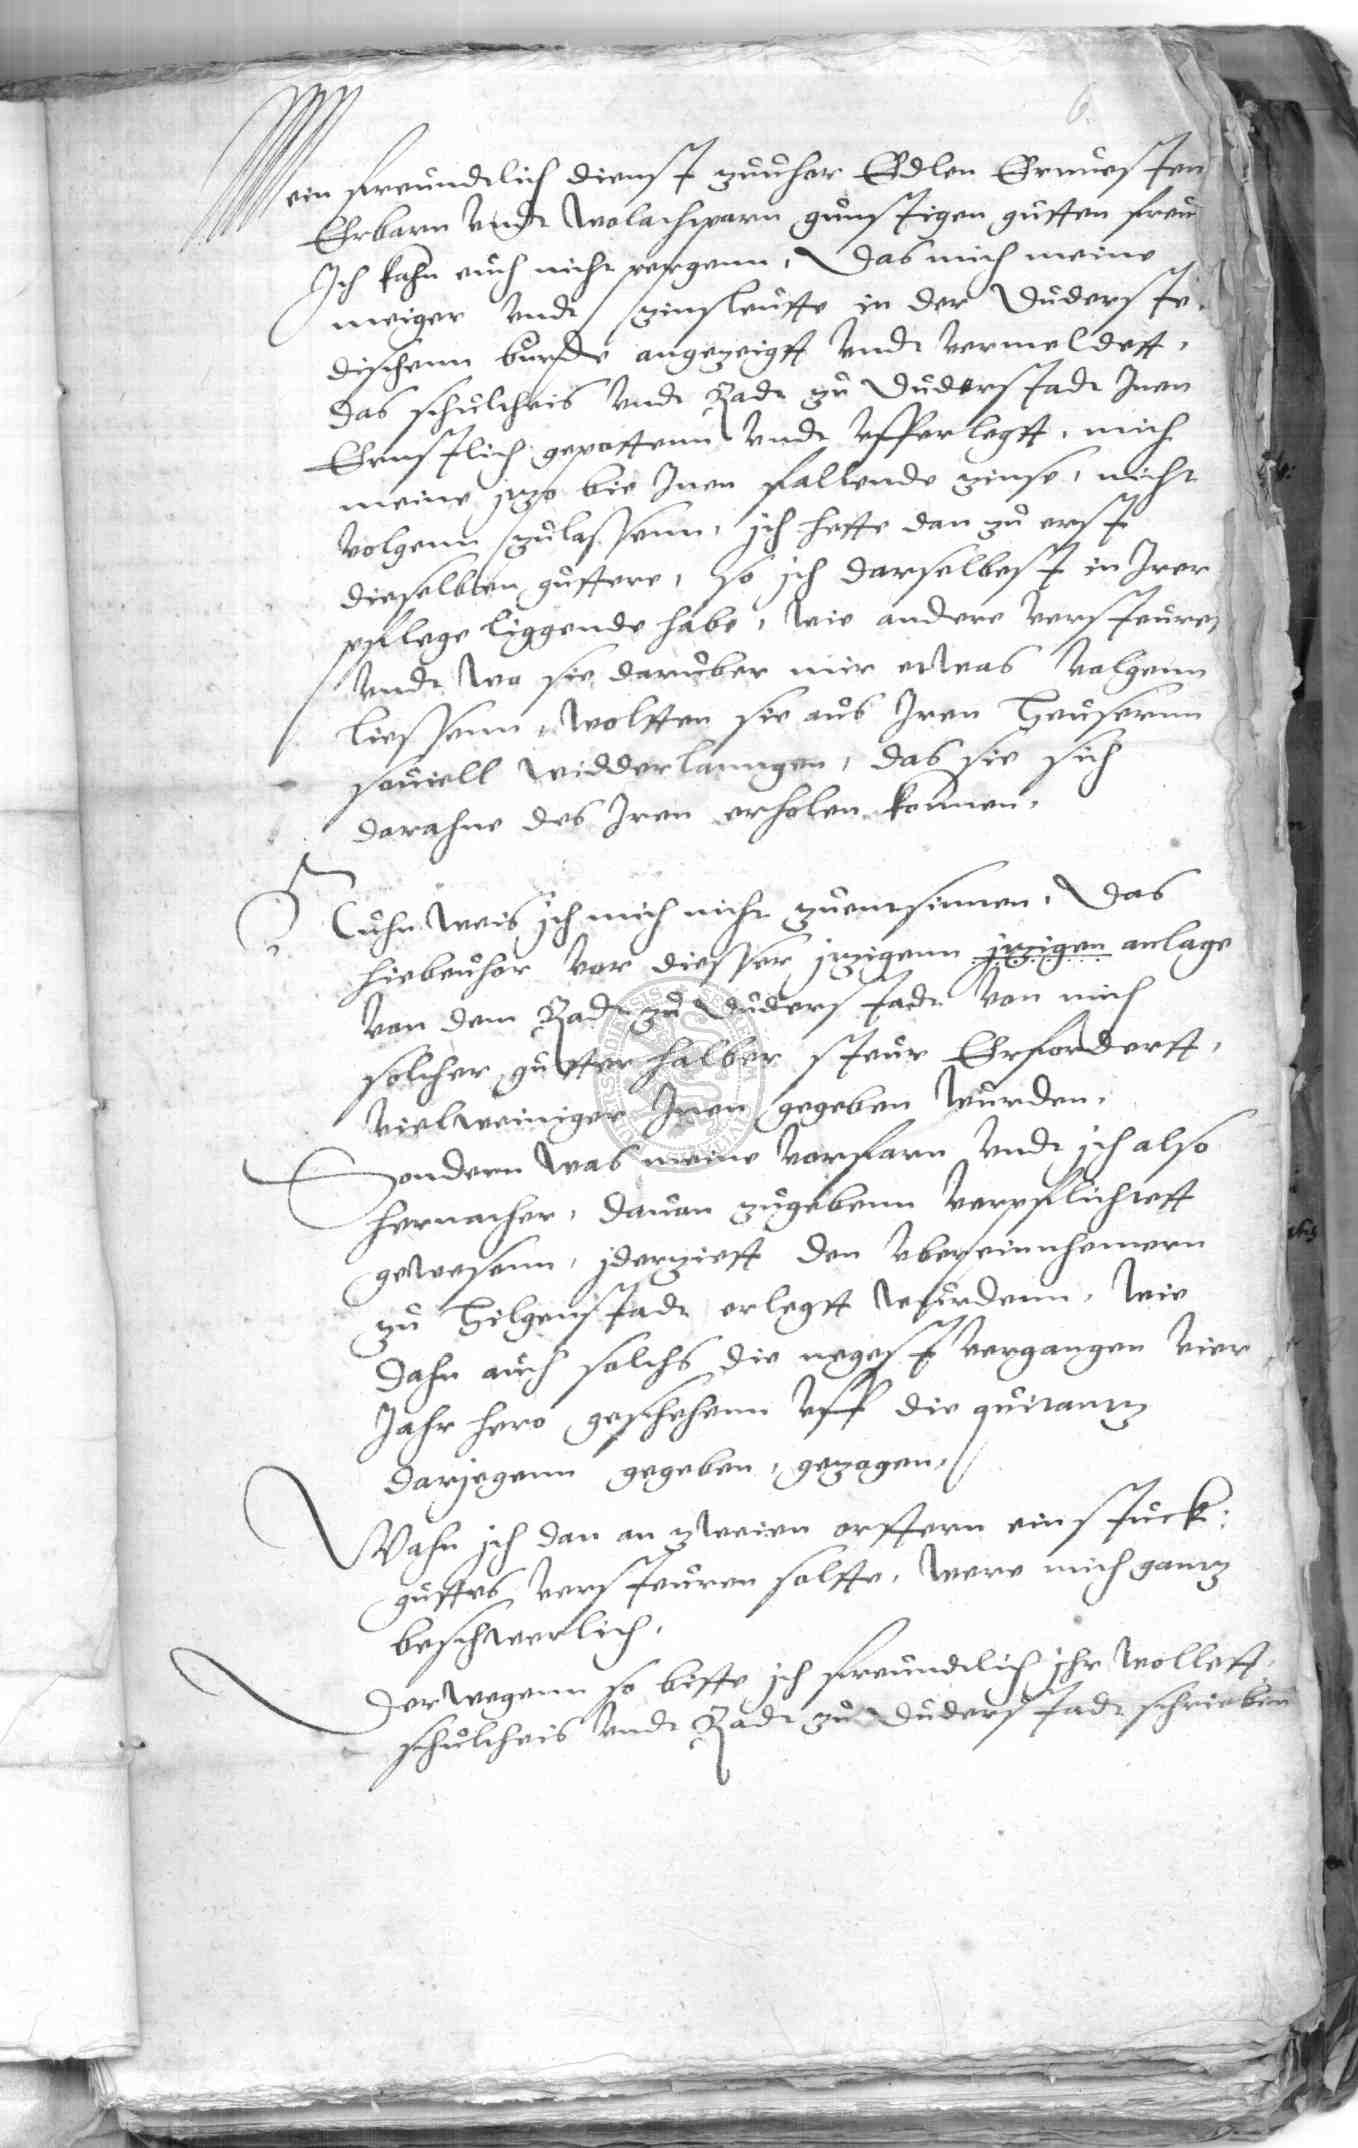 6
Mein freundtlich dienst zuuhor Edlen Ernuesten
Erbarn vndt wolachparn gunstigen gutten freu
Ich kahn euch nicht pergenn, Das mich meine
meiger vndt zinsleutte in der Duderste-
dischenn burde angezeigtt vndt vermeldett,
das schultheis vndt Radt zu Duderstadt Inen
Ernstlich gepottenn vndt vfferlegtt, mich
meine itzo bie Inen fallende zinse, nicht
volgenn zulassenn, ich hette dan zu erst
dieselbten guttere, so ich darselbest in Irer
pflege liggende habe, wie andere versteuret,
vndt wo sie daruber mir etwas volgenn
liessenn, woltten sie aus Iren heusernn
souiell widderlanngen, das sie sich
darahne des Iren erholen konnen,
Nuhn weis ich mich nicht zuentsinnen, Das
hiebeuhor vor diesser itzigenn itzigen anlage
von dem Radt zu Duderstadt von mich
solcher gutter halber steur Erfordertt,
vielweiniger Inen gegeben wurden,
Sondern was meine vorfarn vndt ich also
hernacher, dauan zugebenn verpflichtett
gewesenn, iderzeitt den vbereinnhemern
zu Hilgenstadt erlegtt wurdenn, wie
dahn auch solchs die negest vergangen vier
Jahr hero geschehenn vff die quitantz
darjegenn gegeben, gezogen,
Wahn ich dan an zweien orttern ein stuck
guttes versteuren soltte, were mich gantz
beschwerlich,
Derwegenn so bitte ich freundtlich ihr wollett,
schultheis vndt Radt zu Duderstadt schrieben